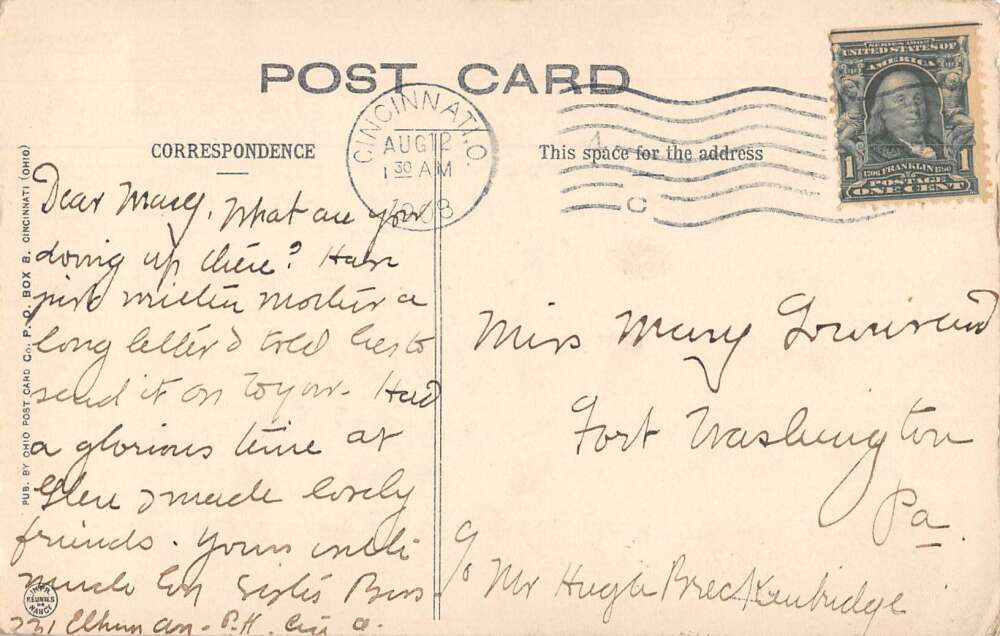 POST CARD
CINCINNATI, O.
AUG 12
1 30 AM
1908
SERIES 1902
UNITED STATES OF
AMERICA
1 1706 FRANKLIN 1790 1
POSTAGE
ONE CENT
CORRESPONDENCE
This space for the address
1
C
Dear Mary, What are you
doing up there? Have
just written mother a
long letter & told her to
send it on to you. Had
a glorious time at
Glen & made lovely
friends. Yours with
much love Sister
Miss Mary Townsend
Fort Washington
Pa
c/o Mr Hugh Breckenridge
PUB. BY OHIO POST CARD CO., P. O. BOX B. CINCINNATI (OHIO)
IMPR.
RÉUNIES
DE
NANCY